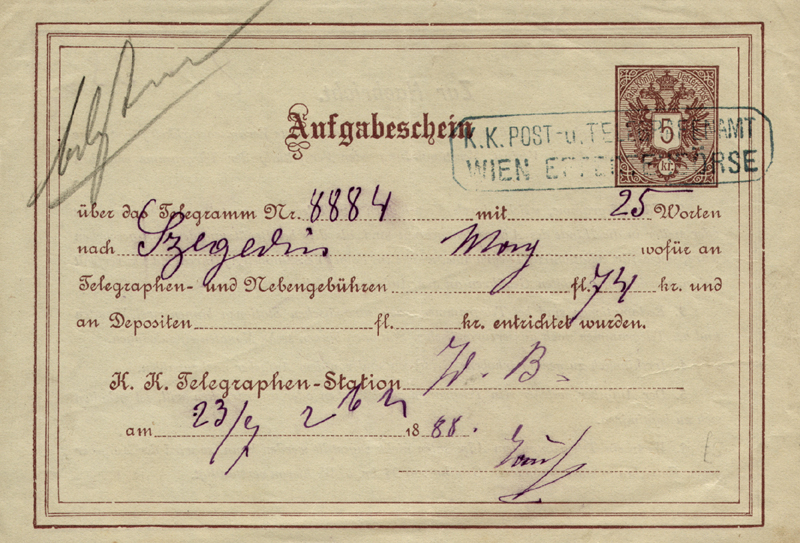 Aufgabeschein
5
kr.
K.K. POST- u. TELEGRAFENAMT
WIEN EFFECTENBÖRSE
über das Telegramm Nr. 8884 mit 25 Worten
nach Szegedin wofür an
Telegraphen- und Nebengebühren fl. 74 kr. und
an Depositen fl. kr. entrichtet wurden.
K. K. Telegraphen-Station W. B.
am 23/7 1888.